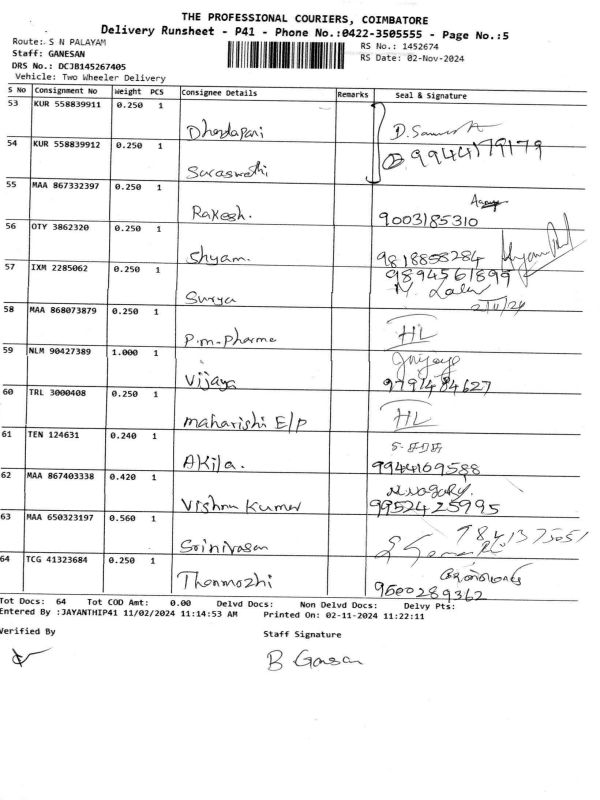 THE PROFESSIONAL COURIERS, COIMBATORE
Delivery Runsheet - P41 - Phone No.:0422-3505555 - Page No.:5
Route: S N PALAYAM
RS No.: 1452674
Staff: GANESAN
RS Date: 02-Nov-2024
DRS No.: DCJB145267405
Vehicle: Two Wheeler Delivery
S No Consignment No Weight PCS Consignee Details Remarks Seal & Signature
53 KUR 558839911 0.250 1
54 KUR 558839912 0.250 1 9944179179
Saraswathi
55 MAA 867332397 0.250 1
Rakesh. 9003185310
56 OTY 3862320 0.250 1
Shyam. 9818858284
57 IXM 2285062 0.250 1 9894561899
Surya 2/11/24
58 MAA 868073879 0.250 1
P.m-Pharma HL
59 NLM 90427389 1.000 1
Vijaya 9791484627
60 TRL 3000408 0.250 1
maharishi E/P HL
61 TEN 124631 0.240 1
Akila. 9944169588
62 MAA 867403338 0.420 1
Vishnu Kumar 9952425995
63 MAA 650323197 0.560 1 7841375051
Srinivasan
64 TCG 41323684 0.250 1
Thenmozhi 9600289362
Tot Docs: 64 Tot COD Amt: 0.00 Delvd Docs: Non Delvd Docs: Delvy Pts:
Entered By :JAYANTHIP41 11/02/2024 11:14:53 AM Printed On: 02-11-2024 11:22:11
Verified By Staff Signature